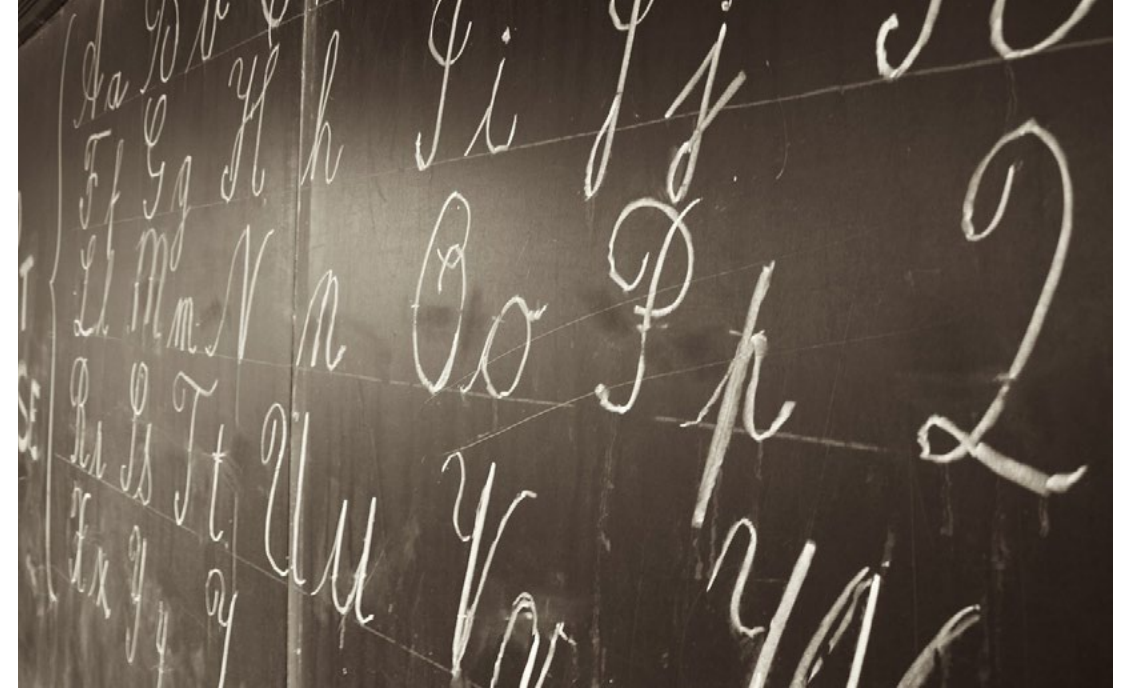 Aa Bb C
Ff Gg Hh Ii Jj K
Ll Mm Nn Oo Pp Q
Rr Ss Tt Uu Vv W
Xx Yy